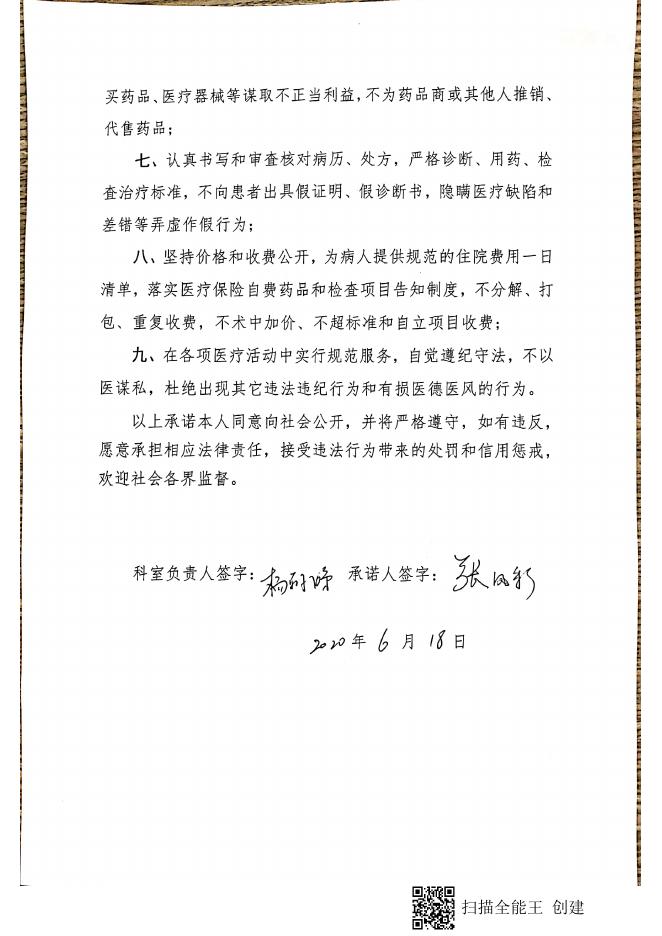 买药品、医疗器械等谋取不正当利益，不为药品商或其他人推销、
代售药品；
七、认真书写和审查核对病历、处方，严格诊断、用药、检
查治疗标准，不向患者出具假证明、假诊断书，隐瞒医疗缺陷和
差错等弄虚作假行为；
八、坚持价格和收费公开，为病人提供规范的住院费用一日
清单，落实医疗保险自费药品和检查项目告知制度，不分解、打
包、重复收费，不术中加价、不超标准和自立项目收费；
九、在各项医疗活动中实行规范服务，自觉遵纪守法，不以
医谋私，杜绝出现其它违法违纪行为和有损医德医风的行为。
以上承诺本人同意向社会公开，并将严格遵守，如有违反，
愿意承担相应法律责任，接受违法行为带来的处罚和信用惩戒，
欢迎社会各界监督。
科室负责人签字： 承诺人签字：张
2020年6月18日
扫描全能王 创建